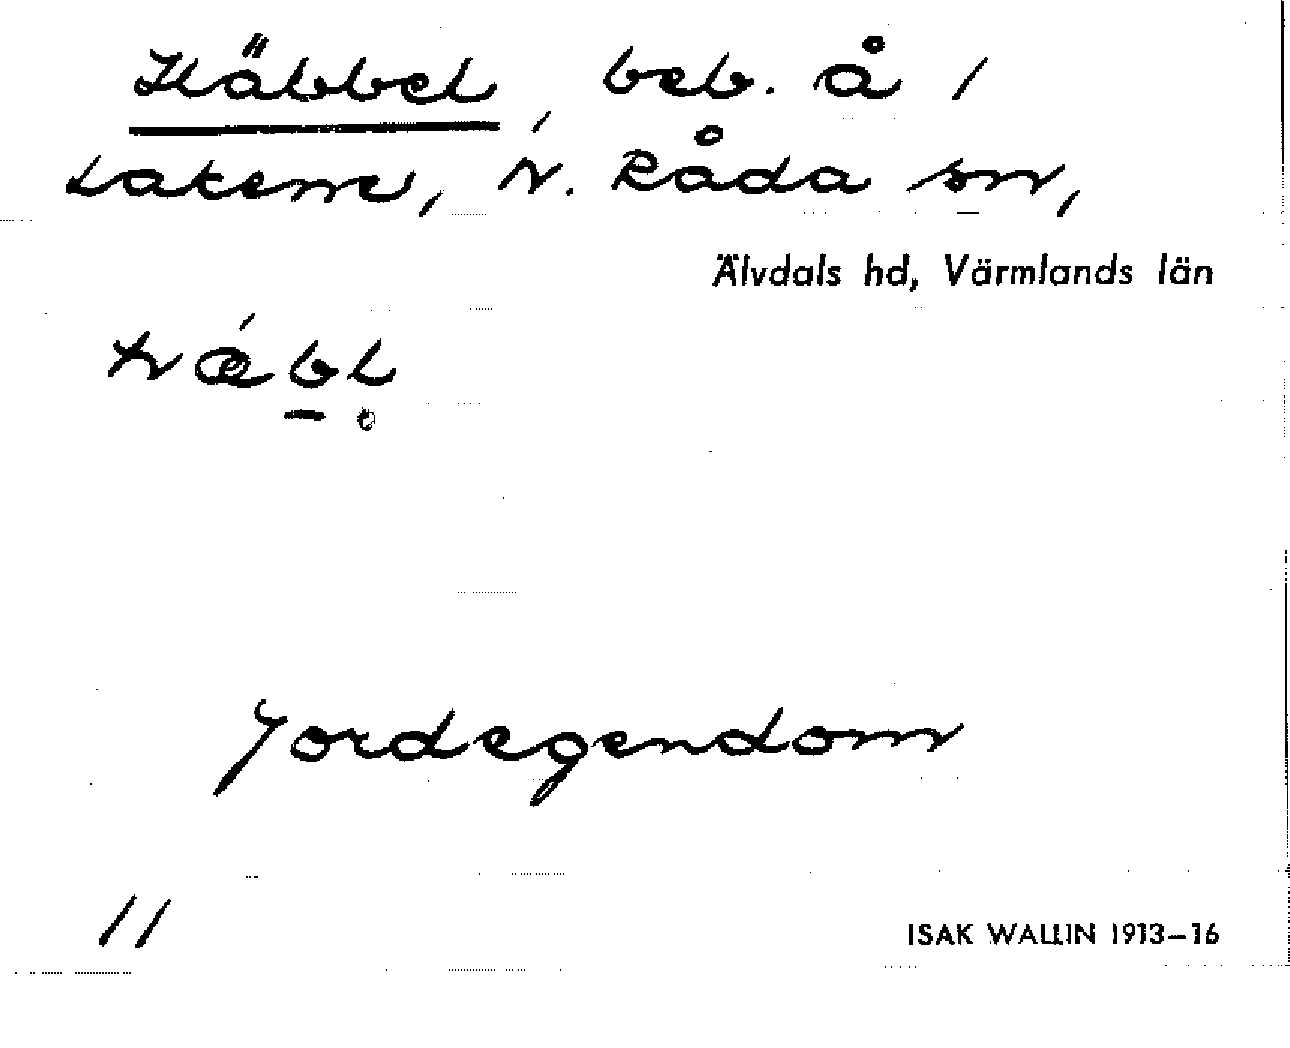 Kläbbel, beb. å 1
Lakene, N. Råda sn,
Älvdals hd, Värmlands län
Jordegendom
11
ISAK WALLIN 1913–16